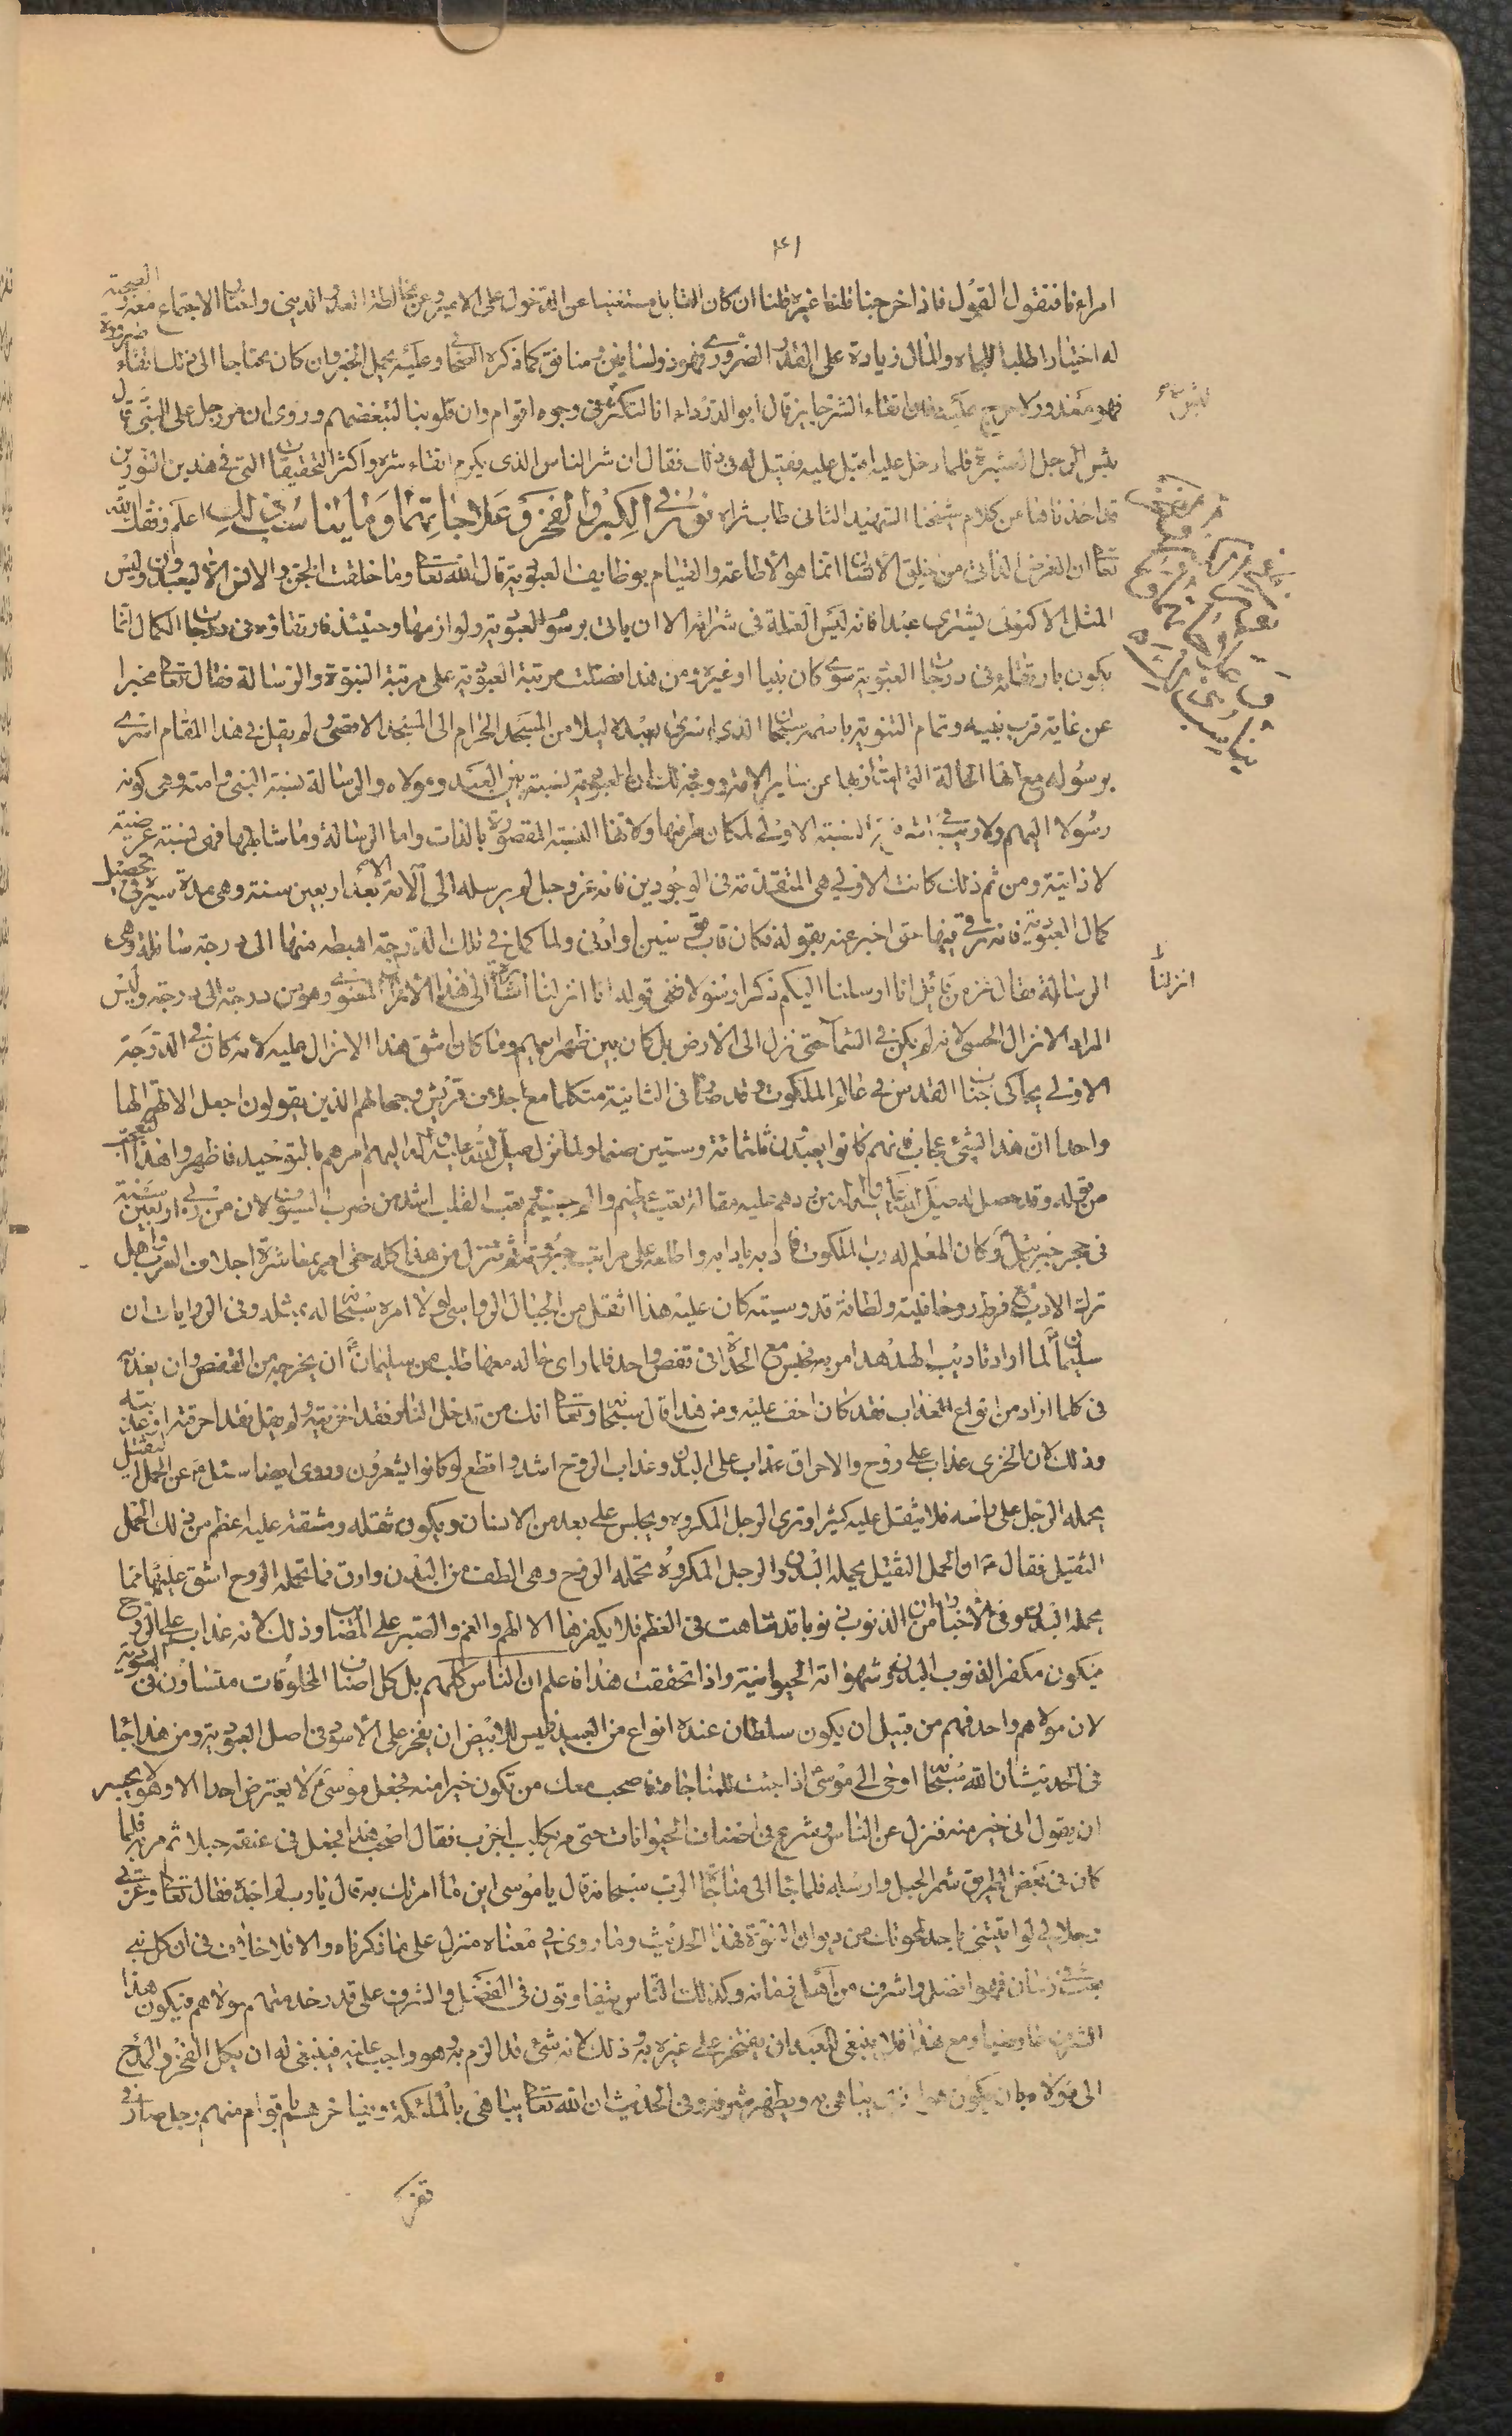 امرائنا فنقول القول فاذا خرجنا قلنا غيره قلنا ان كان القائل مستغنيا عن الدخول على الامير وعن مخالطة العدو الديني واختيار الاجتماع معه الصحبة
له اختيارا طلبا للجاه والمال زيادة على القدر الضروري فهو ذو لسانين ومنافق كما ذكره الصحابي وعليه يحمل الخبر وان كان محتاجا الى ذلك اتقاء ضرورة
فهو معذور ولا حرج عليه فان اتقاء الشر جايز قال ابو الدرداء انا لنكشر في وجوه اقوام وان قلوبنا لتبغضهم وروى انه مر رجل على النبي قال
بئس الرجل العشيرة فلما دخل عليه اقبل عليه فقيل له في ذلك فقال ان شر الناس الذي يكرم اتقاء شره واكثر التحقيقات التي في هذين النورين
مما اخذناها من كلام شيخنا الشهيد الثاني طاب ثراه نور في الكبر والفخر وعلاجاتهما وما يناسب ذلك اعلم وفقك الله
تعالى ان الغرض الذاتي من خلق الانسان انما هو الاطاعة والقيام بوظايف العبودية قال الله تعالى وما خلقت الجن والانس الا ليعبدون وليس
المثل الا كمن يشتري عبدا فانه ليس العلة في شرائه الا ان ياتي برسوم العبودية ولوازمها وحينئذ فارتقاؤه في درجات الكمال انما
يكون بارتقائه في درجات العبودية سوى كان نبيا او غيره ومن هذا فضلت مرتبة العبودية على مرتبة النبوة والرسالة فقال تعالى مخبرا
عن غاية قرب نبيه وتمام التنويه باسمه سبحان الذي اسرى بعبده ليلا من المسجد الحرام الى المسجد الاقصى لم يقل في هذا المقام اسرى
برسوله مع انها الحالة التي امتاز بها عن ساير الانبياء ووجه ذلك ان العبودية نسبة بين العبد ومولاه والرسالة نسبة النبي وامته وهي كونه
رسولا اليهم ولا ريب في اشرفية النسبة الاولى لمكان طرفيها ولانها النسبة المقصودة بالذات واما الرسالة وما شاكلها فهي نسبة عرضية
لا ذاتية ومن ثم ذلك كانت الاولى هي المتقدمة في الوجودين فانه عز وجل لم يرسله الى الامة الا بعد اربعين سنة وهي مدة سيره في تحصيل
كمال العبودية فانه ترقى فيها حتى اخبر عنه بقوله فكان قاب قوسين او ادنى ولما كمل في تلك الدرجة اهبطه منها الى درجة سافلة وهي
الرسالة فقال عز من قائل انا ارسلنا اليكم ذكرا رسولا ففي قوله انا انزلنا اشارة الى هذا الانزال المعنوي وهو من درجة الى درجة وليس
المراد الانزال الحسي لانه لم يكن في السماء حتى نزل الى الارض بل كان بين ظهرانيهم وما كان اشق هذا الانزال عليه لانه كان في الدرجة
الاولى يحاكى جناب القدس في عالم الملكوت وقد صار في الثانية متكلما مع اجلاف قريش وجهالهم الذين يقولون اجعل الالهة الها
واحدا ان هذا لشيء عجاب فانهم كانوا يعبدون ثلثمائة وستين صنما ولما نزل صلى الله عليه وآله اليهم امرهم بالتوحيد فاظهروا هذا التعجب
من قوله وقد حصل له صلى الله عليه وآله من ردهم عليه مقالته تعب عظيم وألم جسيم تعب القلب اشد من ضرب السيوف لان من ربي اربعين سنة
في حجر جبرئيل وكان المعلم له رب الملكوت فادبه بادابه واطلعه على مراتب جبروته ثم تنزل من هذا كله حتى امر بمعاشرة اجلاف العرب واهل
ترك الادب مع فرط روحانيته ولطافة قدوسيته كان عليه هذا اثقل من الجبال الرواسي لولا امره سبحانه له بمثله وفي الروايات ان
سليمان لما اراد تاديب الهدهد امر به فحبس مع الحدأة في قفص واحد فلما راى حاله معها طلب من سليمان ان يخرجه من القفص وان يعذبه
في كلما اراد من انواع العذاب فقد كان اخف عليه ومن هذا قال سبحانه وتعالى انك من تدخل النار فقد اخزيته ولم يقل فقد احرقته او عذبته
وذلك لان الخزى عذاب على الروح والاحراق عذاب على البدن وعذاب الروح اشد واقطع لو كانوا يشعرون وروى ايضا سئل عن الحمل الثقيل
يحمله الرجل على راسه فلا يثقل عليه كثيرا وترى الرجل المكروه ويجلس على بعد من الانسان ويكون ثقله ومشقته عليه اعظم من ذلك الحمل
الثقيل فقال ان الحمل الثقيل يحمله البدن والرجل المكروه تحمله الروح وهي الطف من البدن وارق فما تحمله الروح اشق عليها مما
يحمله البدن وفي الاخبار ان من الذنوب ذنوبا قد تناهت في العظم فلا يكفرها الا الهم والغم والصبر على المصائب وذلك لانه عذاب على الروح
فيكون مكفر الذنوب البدن وشهواته الحيوانية واذا تحققت هذا فاعلم ان الناس كلهم بل كل اصناف المخلوقات متساوون في العبودية
لان مولاهم واحد فهم من قبيل ان يكون سلطان عنده انواع من العبيد فليس للابيض ان يفخر على الاسود في اصل العبودية ومن هذا جاء
في الحديث ان الله سبحانه اوحى الى موسى اذا جئت للمناجاة فاصحب معك من تكون خيرا منه فجعل موسى لا يعترض احدا الا وهو لا يجسر
ان يقول اني خير منه فنزل عن الناس وشرع في اصناف الحيوانات حتى مر بكلب اجرب فقال اصحب هذا فجعل في عنقه حبلا ثم مر به فلما
كان في بعض الطريق شمر الحبل وارسله فلما جاء الى مناجاة الرب سبحانه قال يا موسى اين ما امرتك به قال يا رب لم اجده فقال تعالى وعزتي
وجلالي لو اتيتني باحد لمحوتك من ديوان النبوة فهذا الحديث وما روى في معناه منزل على ما ذكرناه والا فلا خلاف في ان كل نبي
بعث في زمان فهو افضل واشرف من اهل زمانه وكذلك الناس يتفاوتون في الفضل والشرف على قدر خدمتهم مولاهم فيكون هذا
الشرف عارضيا ومع هذا فلا ينبغي للعبد ان يفتخر على غيره به وذلك لانه شيء قد الزم به وهو واجب عليه فينبغي له ان يكل الفخر والمدح
الى مولاه بان يكون هو الذي يباهي به ويظهر شرفه وفي الحديث ان الله تعالى يباهي بالملئكة ويفاخرهم باقوام منهم رجل صار في
انزلنا